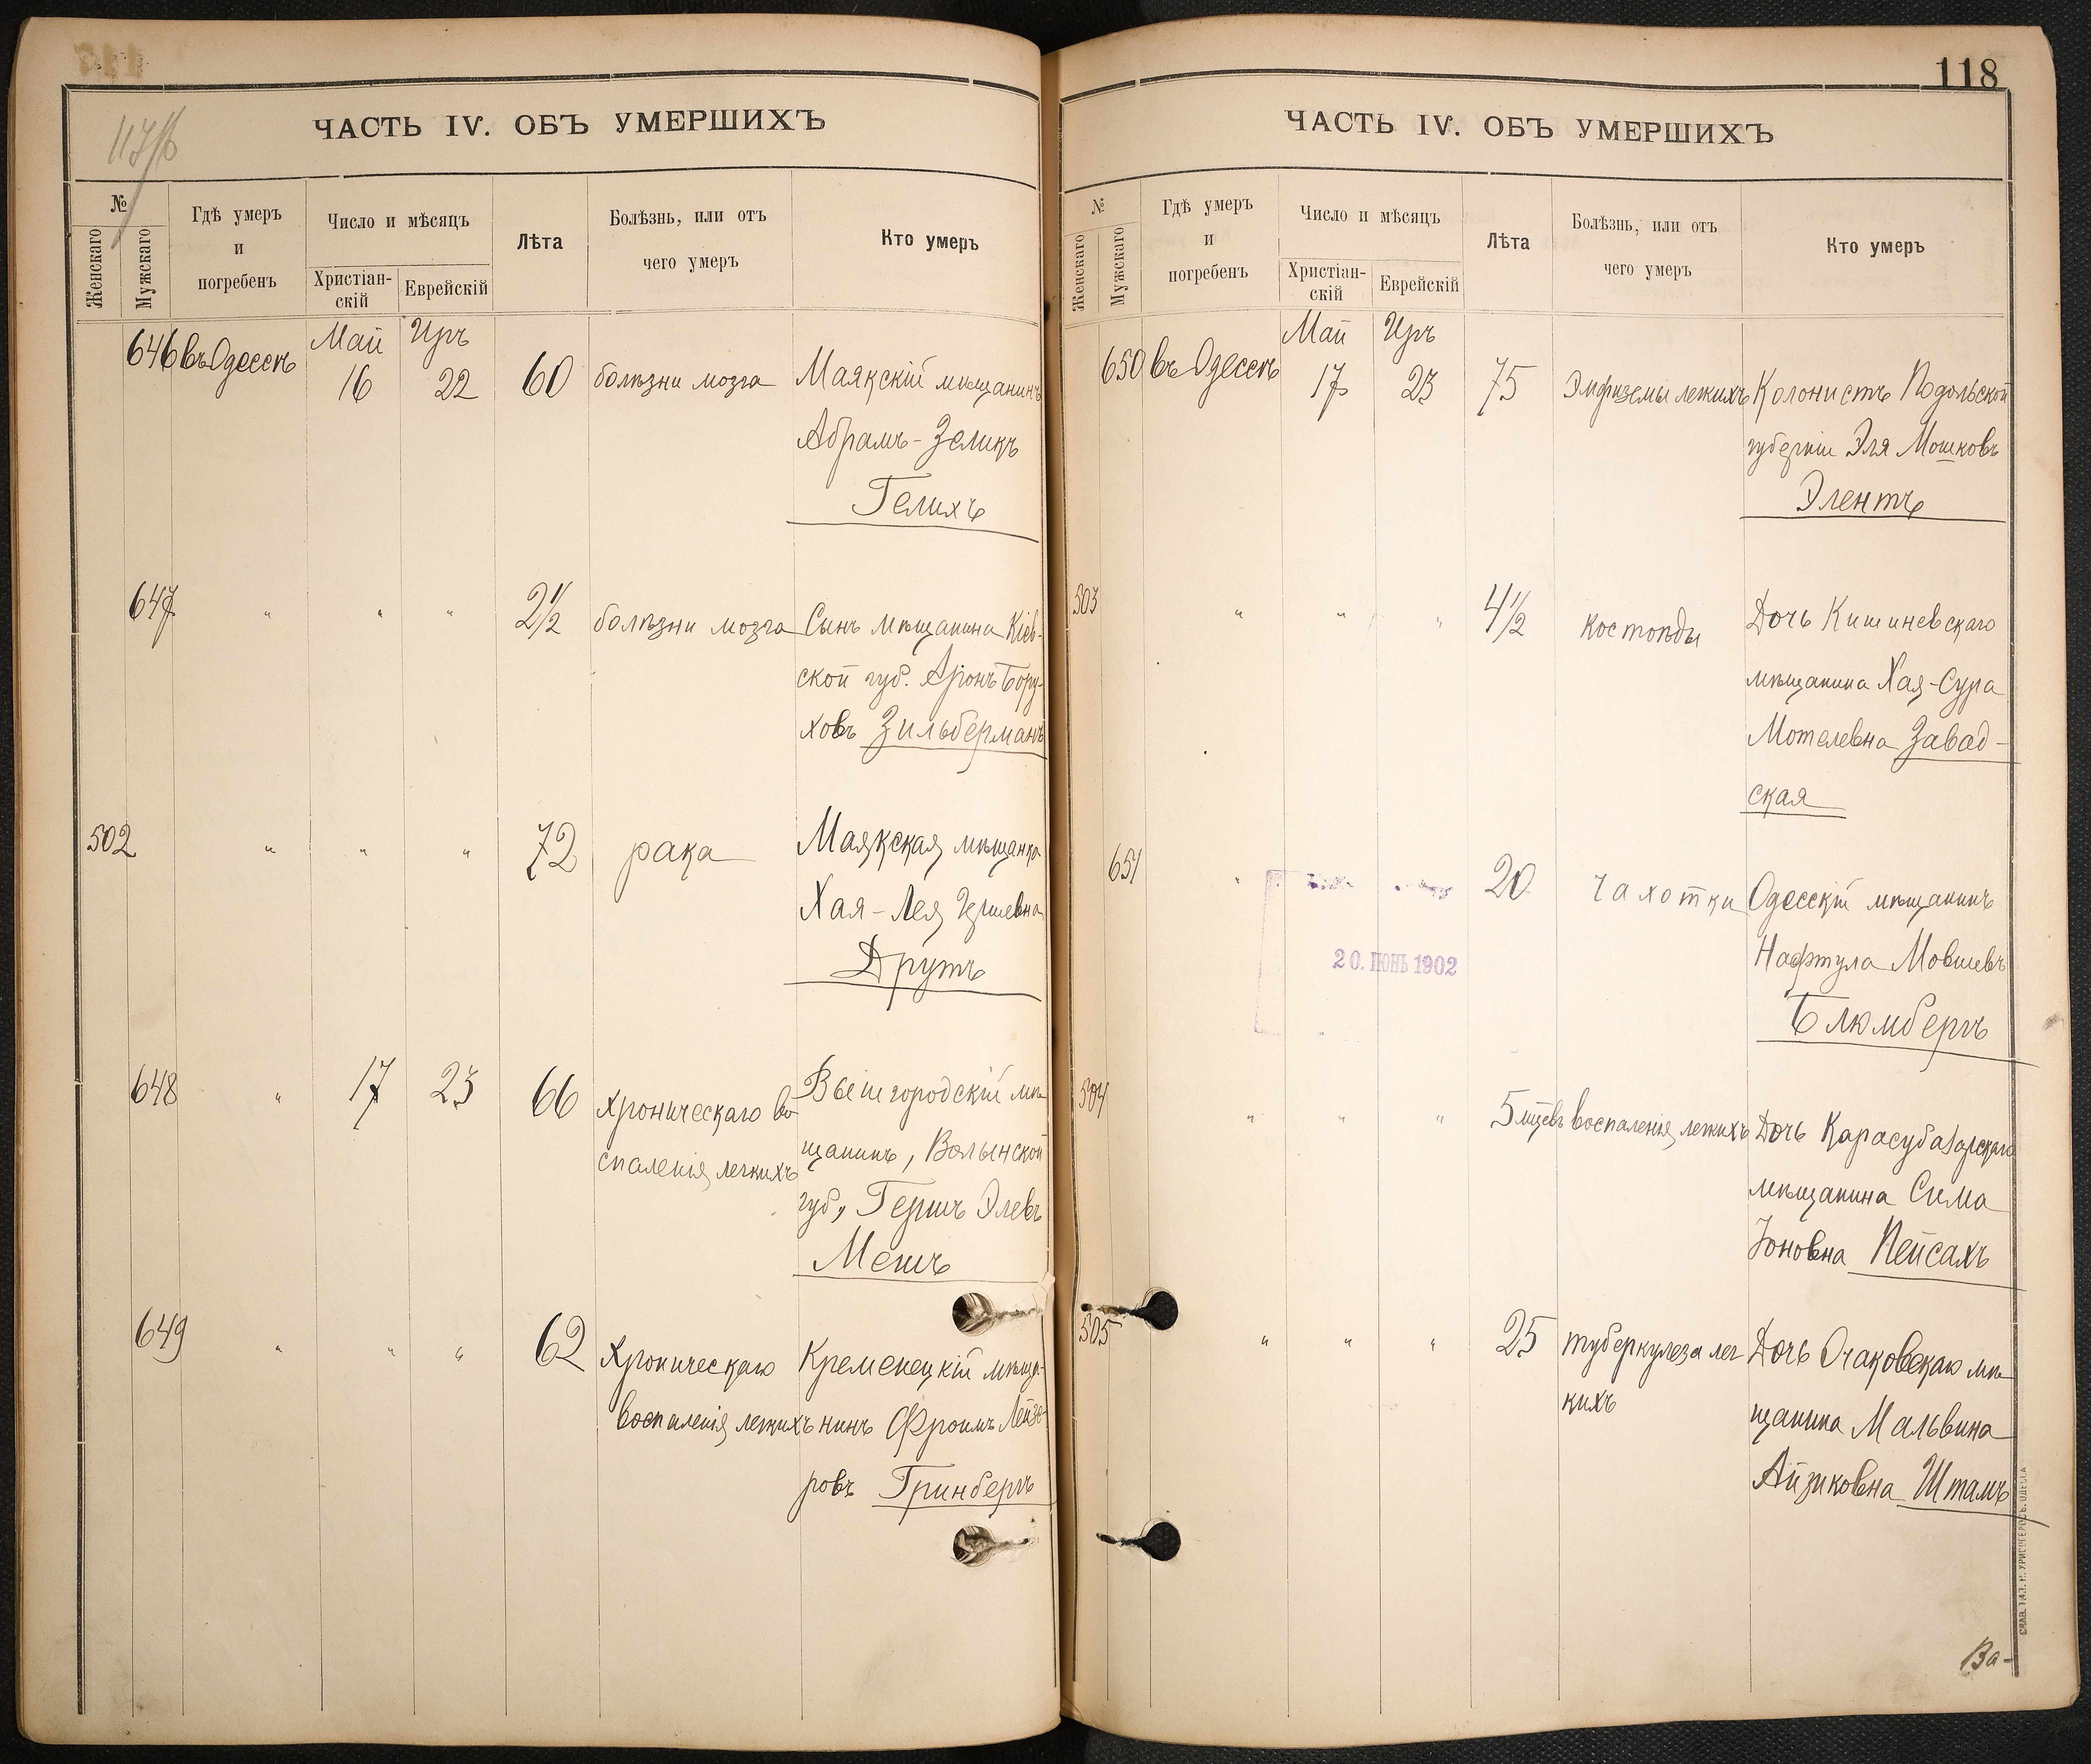 ЧАСТЬ IV. ОБЪ УМЕРШИХЪ
№
Женскаго
Мужскаго
Гдѣ умеръ
и
погребенъ
Число и мѣсяцъ
Христіан-
скій
Еврейскій
Лѣта
Болѣзнь, или отъ
чего умеръ
Кто умеръ
Май Иръ
646 въ Одессѣ 16 22 60 болѣзни мозга Маякскій мѣщанинъ
Абрамъ-Зеликъ
Гелихъ
647 " " " 2½ болѣзни мозга Сынъ мѣщанина Кіев-
ской губ. Аронъ Бору-
ховъ Зильберманъ
502 " " " 72 рака Маякская мѣщанка
Хая-Лея Гершевна
Друтъ
648 " 17 23 66 Хроническаго во Вышгородскій мѣ
спаленія легкихъ щанинъ, Волынской
губ, Гершъ Элевъ
Мешъ
649 " " " 62 Хроническаго Кременецкій мѣща-
воспаленія легкихъ нинъ Фроимъ Лейзе-
ровъ Гринбергъ
118
ЧАСТЬ IV. ОБЪ УМЕРШИХЪ
№
Женскаго
Мужскаго
Гдѣ умеръ
и
погребенъ
Число и мѣсяцъ
Христіан-
скій
Еврейскій
Лѣта
Болѣзнь, или отъ
чего умеръ
Кто умеръ
Май Иръ
650 въ Одессѣ 17 23 75 Эмфиземы легкихъ Колонистъ Подольской
губерніи Эля Мошковъ
Элентъ
503 " " " 4½ костоѣды Дочь Кишиневскаго
мѣщанина Хая-Сура
Мотелевна Завад-
ская
651 " 20 Чахотки Одесскій мѣщанинъ
20. ІЮНЬ 1902
Нафтула Мовшевъ
Блюмбергъ
504 " " " 5 мѣсцевъ воспаленія легкихъ Дочь Карасубазарскаго
мѣщанина Сима
Іоновна Пейсахъ
505 " " " 25 туберкулеза лег Дочь Очаковскаго мѣ
кихъ
щанина Мальвина
Айзиковна Штамъ
Ва-